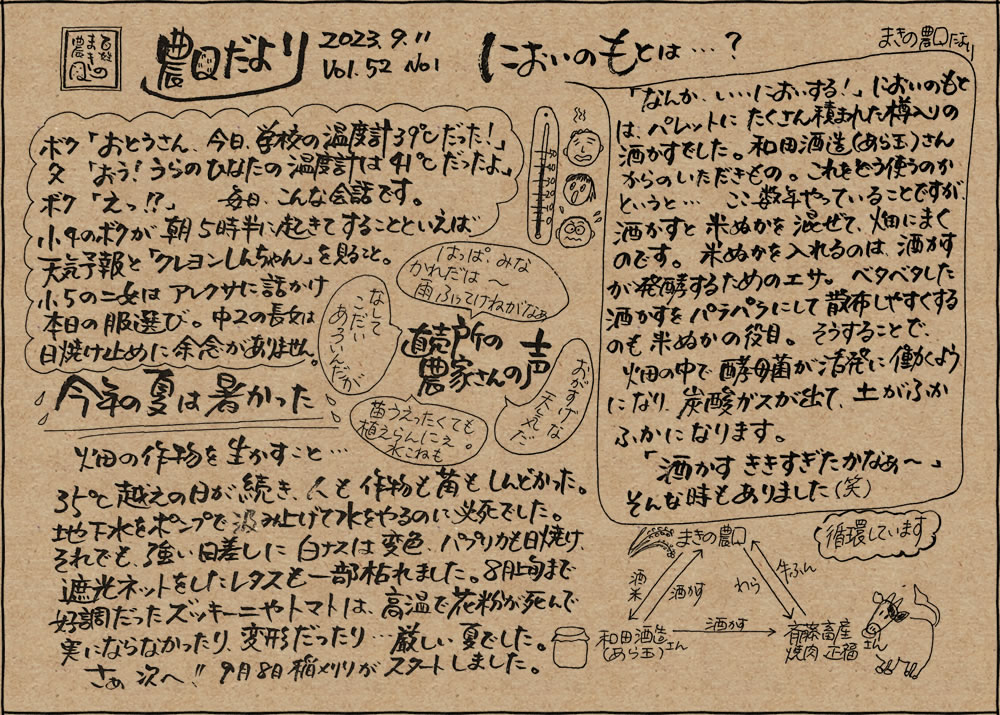 百姓
まきの
農園
農園だより
2023.9.11
Vol.52 No1
においのもとは…？
まきの農園だより
ボク「おとうさん、今日、学校の温度計39℃だった！」
父「おう！うらのひなたの温度計は41℃だったよ」
ボク「えっ!?」 毎日、こんな会話です。
小4のボクが朝5時半に起きてすることといえば
天気予報と「クレヨンしんちゃん」を見ること。
小5の二女はアレクサに話かけ
本日の服選び。中2の長女は
日焼け止めに余念がありません。
50
40
30
20
10
0
はっぱ、みな
かれだは〜
雨ふってけねがなぁ
なして
こだい
あろいんだが
直売所の
農家さんの声
おがすげな
天気だ
苗うえったくても
植えらんにぇ。
水こねも
今年の夏は暑かった
畑の作物を生かすこと…
35℃越えの日が続き、人も作物も苗もしんどかった。
地下水をポンプで汲み上げて水をやるのに必死でした。
それでも、強い日差しに白ナスは変色、パプリカも日焼け、
遮光ネットをしたレタスも一部枯れました。8月上旬まで
好調だったズッキーニやトマトは、高温で花粉が死んで
実にならなかったり、変形だったり…厳しい夏でした。
さぁ 次へ!! 9月8日稲刈りがスタートしました。
「なんか、い…においする！」においのもと
は、パレットにたくさん積まれた樽入りの
酒かすでした。和田酒造(あら玉)さん
からのいただきもの。これをどう使うのか
というと… ここ数年やっていることですが、
酒かすと米ぬかを混ぜて、畑にまく
のです。米ぬかを入れるのは、酒かす
が発酵するためのエサ。ベタベタした
酒かすをパラパラにして散布しやすくする
のも米ぬかの役目。そうすることで、
畑の中で酵母菌が活発に働くよう
になり、炭酸ガスが出て、土がふか
ふかになります。
「酒かすききすぎたかなぁ〜」
そんな時もありました(笑)
循環しています
まきの農園
酒米
酒かす
わら
牛ふん
和田酒造さん
(あら玉)
酒かす
斉藤畜産
焼肉 正福
さん